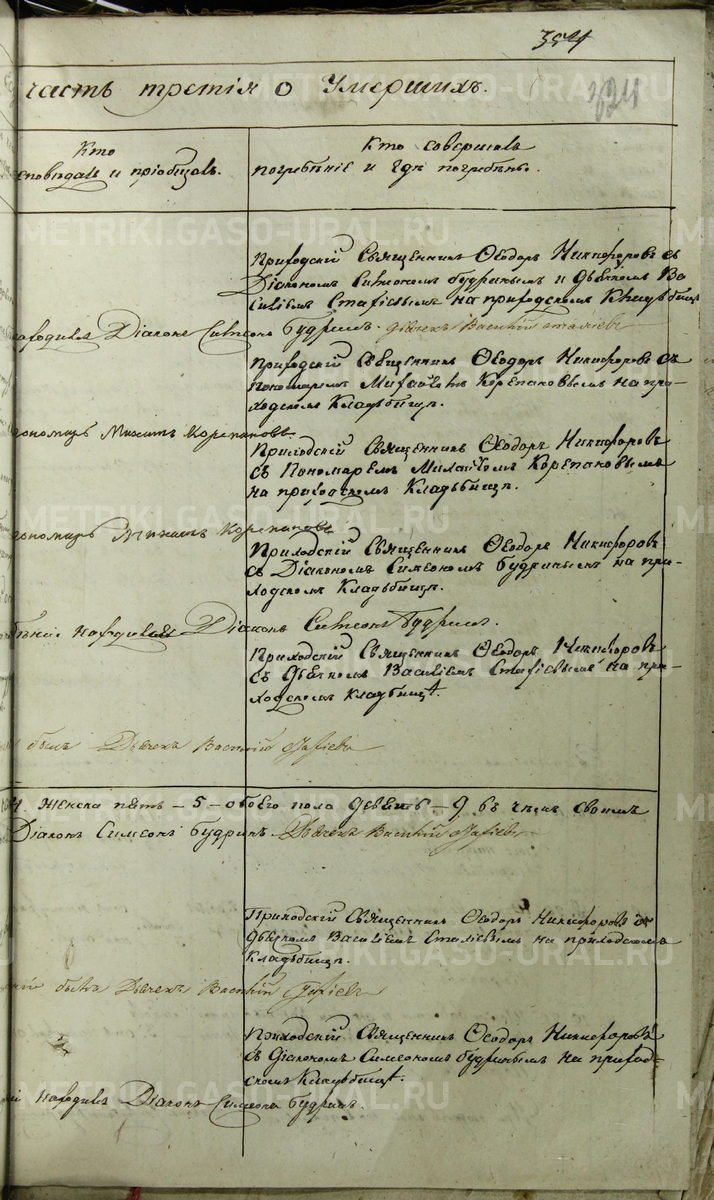 354
324
часть третія о Умершихъ.
Кто
споведалъ и пріобщалъ.
Кто совершалъ
погребеніе и где погребены.
Приходскій Священникъ Ѳеодоръ Никифоровъ съ
Діакономъ Симеономъ Будринымъ и дьячкомъ Ва
силіемъ Стафіевымъ на приходскомъ Кладбищѣ
находился Діаконъ Симеонъ Будринъ. дьячекъ Василий Стафіевъ
Приходскій Священникъ Ѳеодоръ Никифоровъ съ
пономаремъ Михаиломъ Корепановымъ на при-
ходскомъ Кладбищѣ.
пономарь Михаилъ Корепановъ
Приходскій Священникъ Ѳеодоръ Никифоровъ
съ Пономаремъ Михаиломъ Корепановымъ
на приходскомъ Кладбищѣ.
пономарь Михаилъ Корепановъ
Приходскій Священникъ Ѳеодоръ Никифоровъ
съ Діакономъ Симеономъ Будринымъ на при-
ходскомъ Кладбищѣ.
находился Діаконъ Симеонъ Будринъ.
Приходскій Священникъ Ѳеодоръ Никифоровъ
съ дьячкомъ Василіемъ Стафіевымъ на при-
ходскомъ кладбищѣ.
былъ Дьячекъ Василій Стафіевъ
Женска пять - 5 - обоего пола девять - 9 въ чемъ своимъ
Діаконъ Симеонъ Будринъ. Дьячекъ Василій Стафіевъ
Приходскій Священникъ Ѳеодоръ Никифоровъ съ
дьячкомъ Василіемъ Стафіевымъ на приходскомъ
Кладбищѣ.
былъ Дьячекъ Василій Стафіевъ
Приходскій Священникъ Ѳеодоръ Никифоровъ
съ діакономъ Симеономъ Будринымъ на приход-
скомъ Кладбищѣ.
находился Діаконъ Симеонъ Будринъ.
METRIKI.GASO-URAL.RU